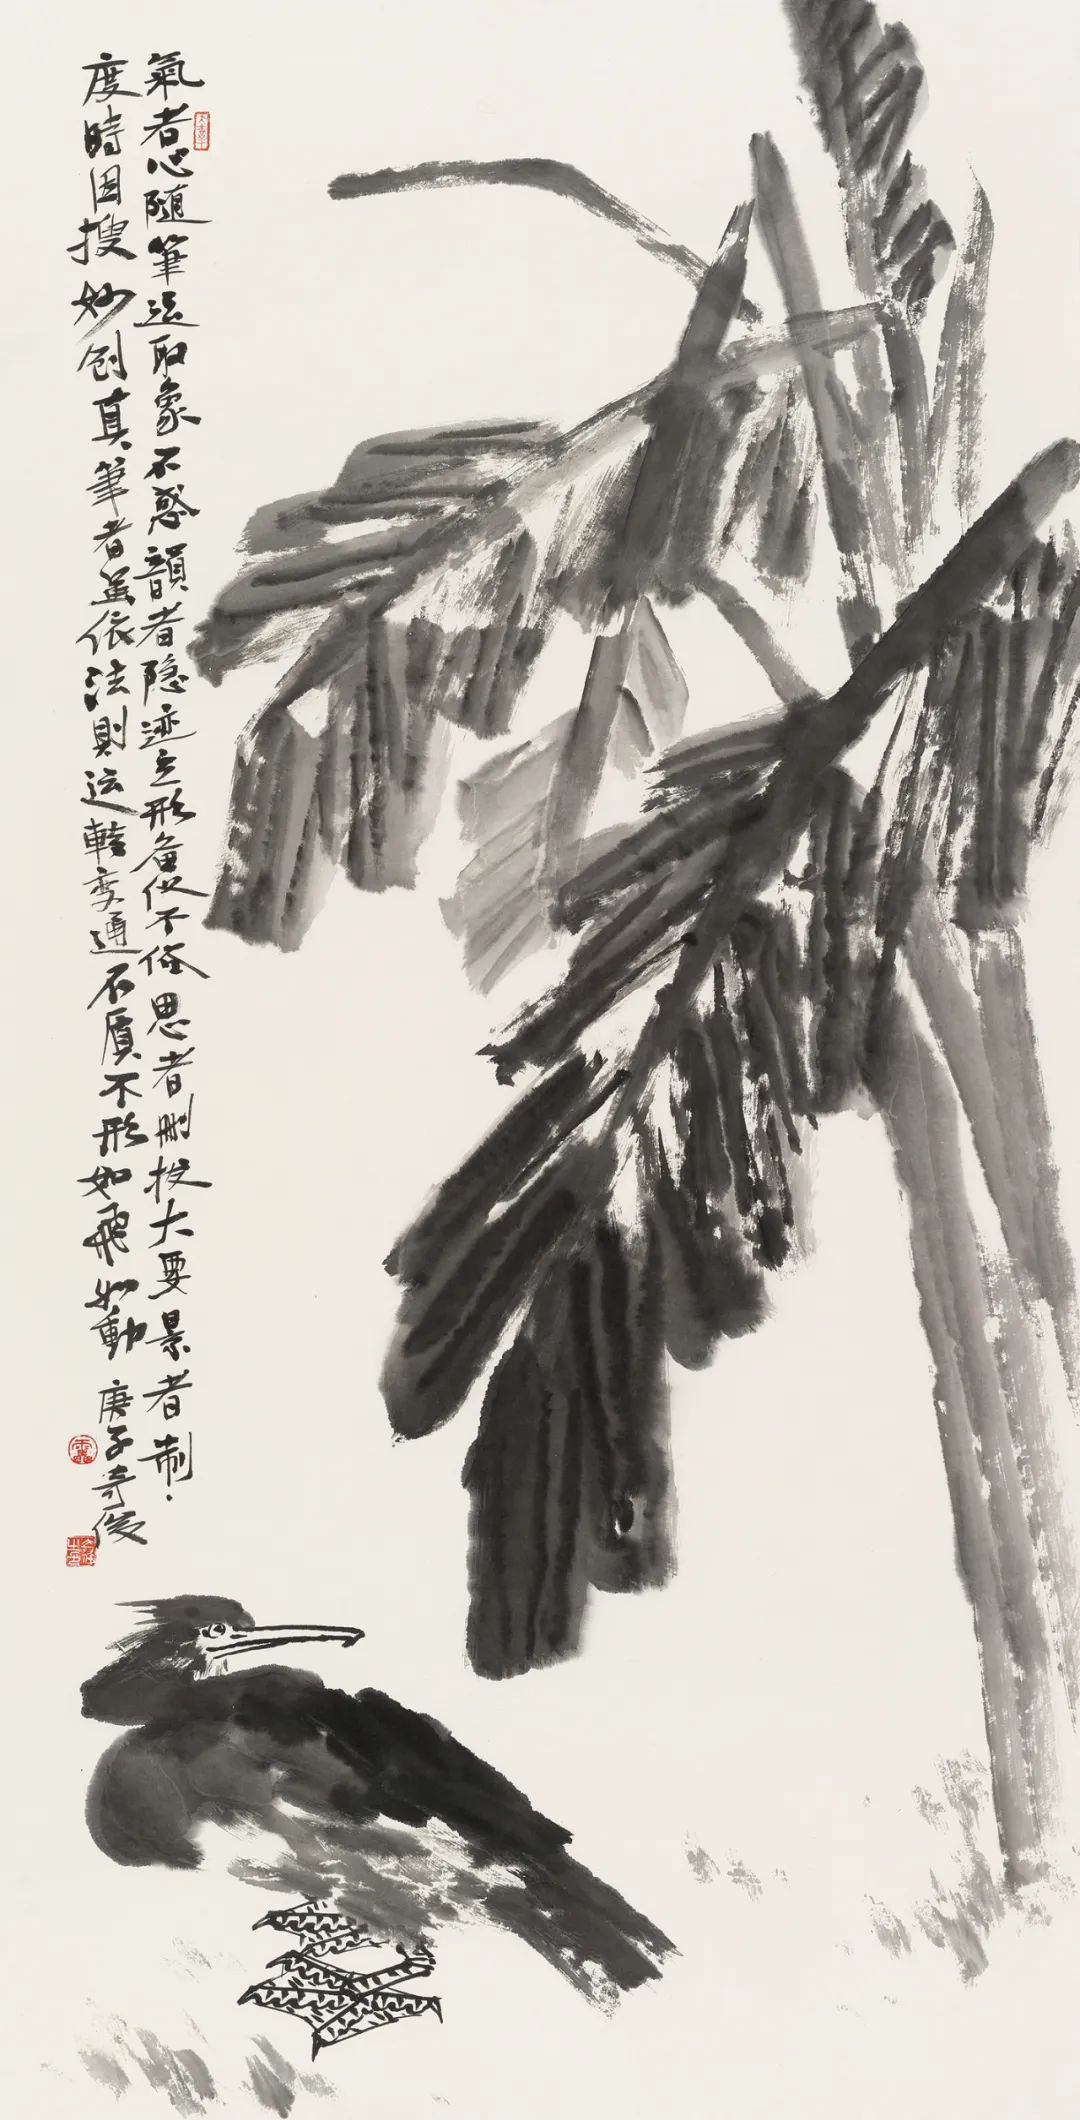 氣者心随筆运取象不惑韻者隐迹立形備仪不俗思者删拔大要景者制
度時因搜妙创真筆者虽依法則运轉变通不質不形如飛如動 庚子奇俊